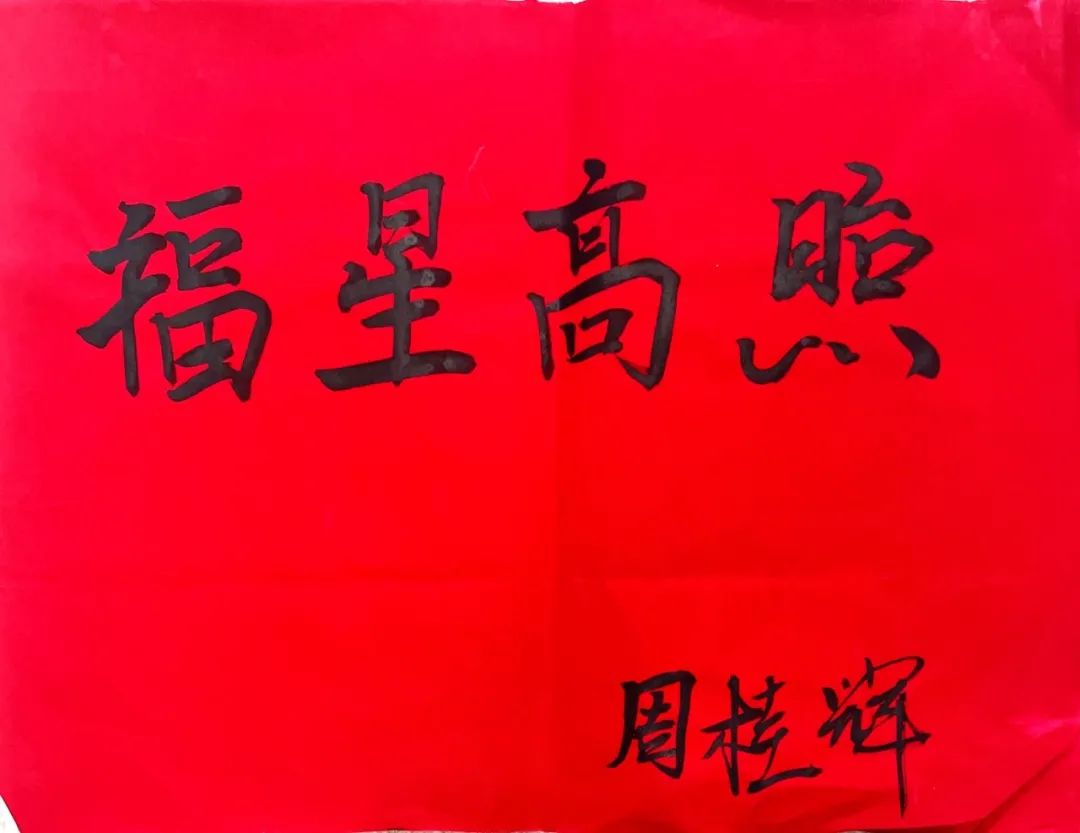 福星高照
周桂辉